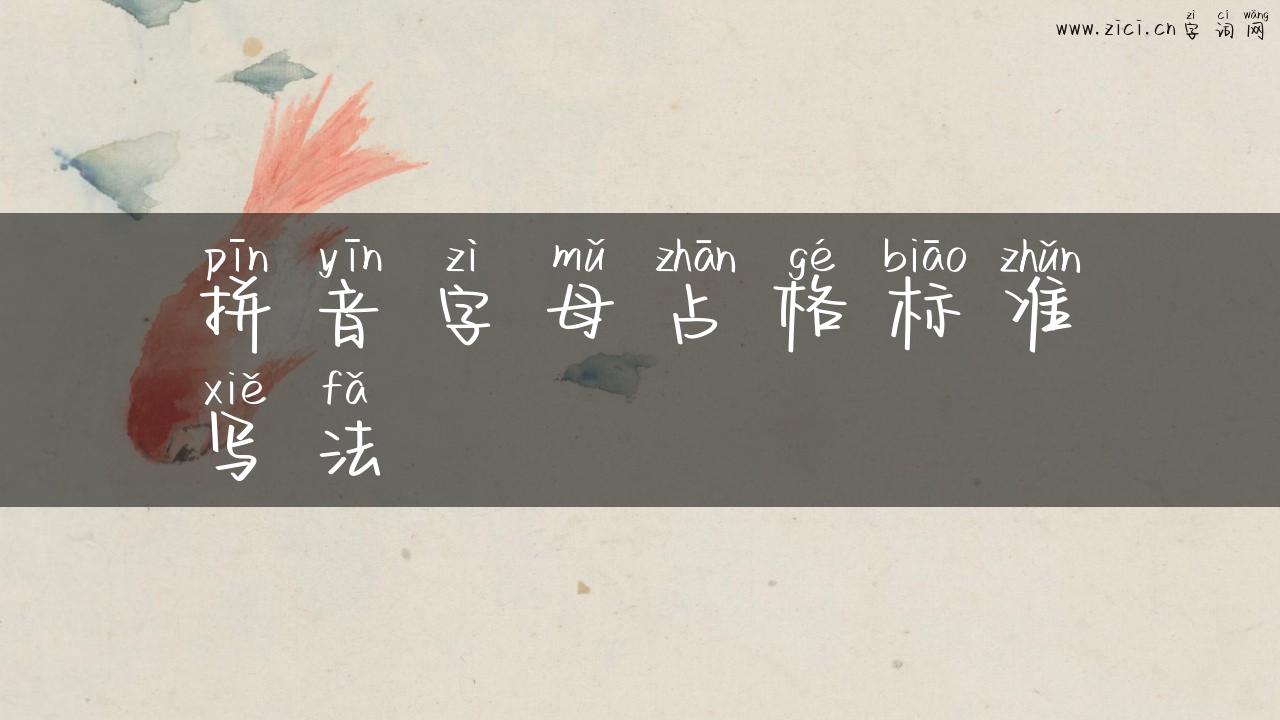 zì cí wǎng
www.zici.cn 字词网
pīn yīn zì mǔ zhān gé biāo zhǔn
拼音字母占格标准
xiě fǎ
写法